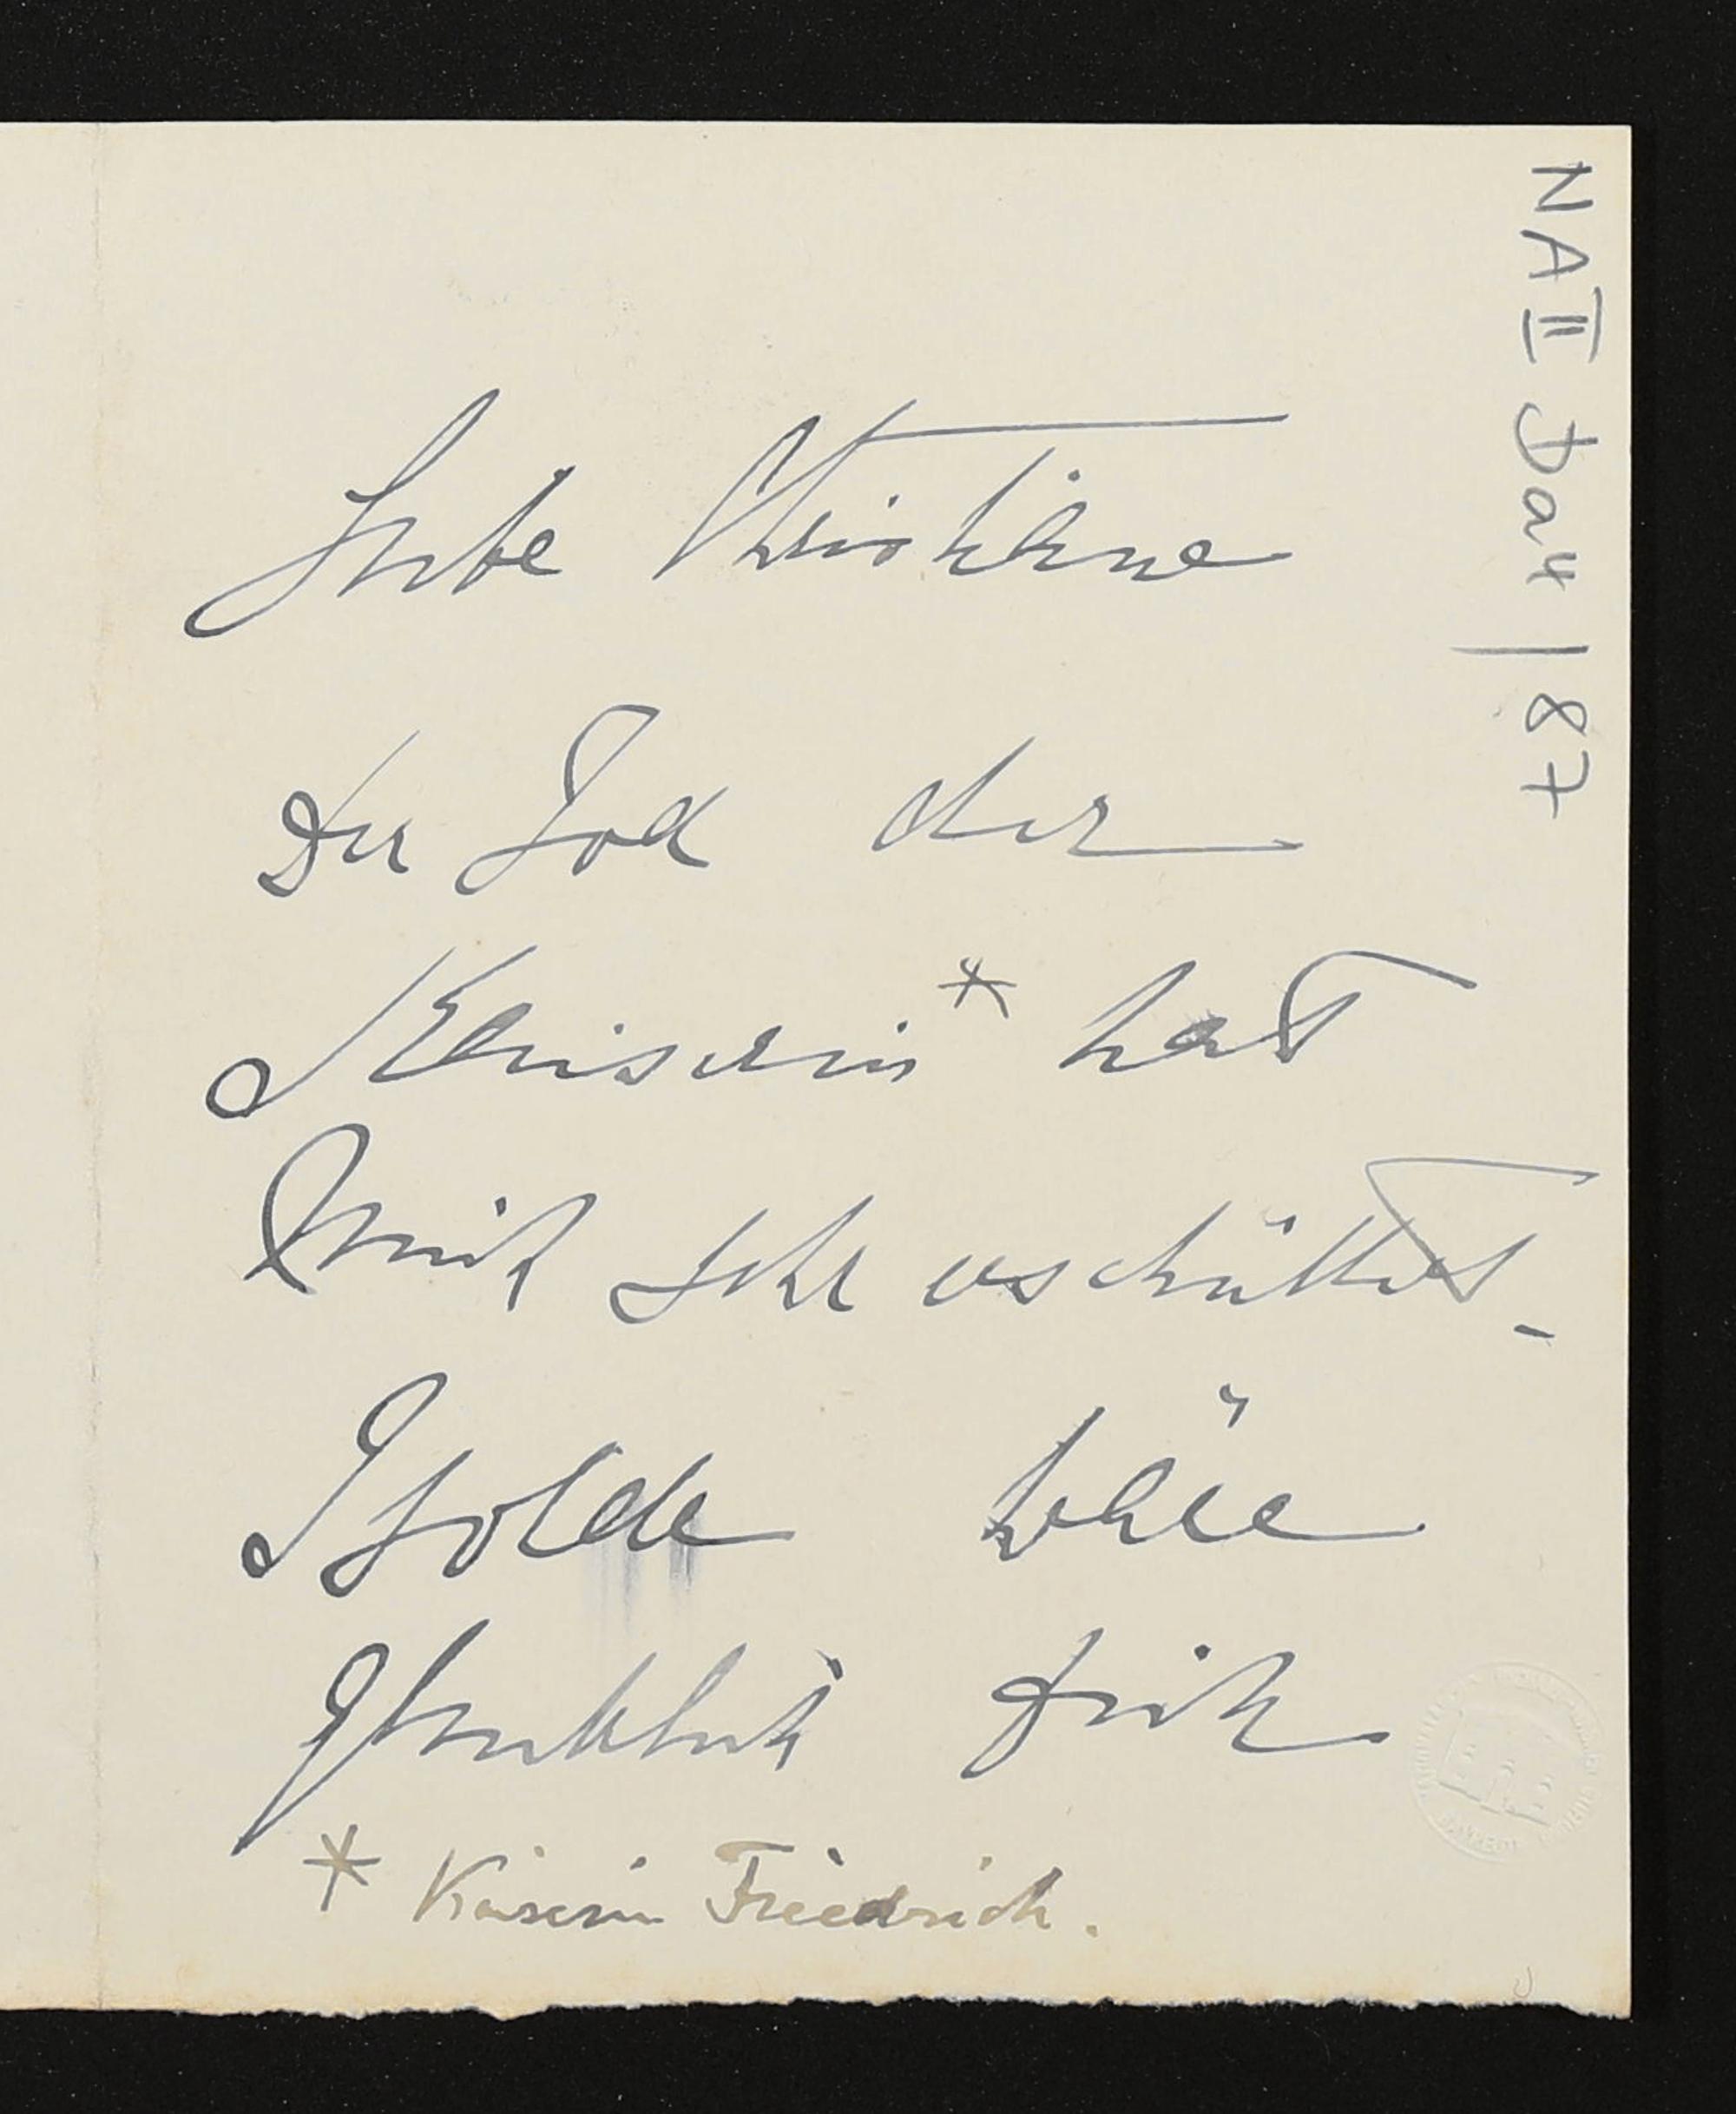 NA II Da 4 | 87
Liebe Christiane
Der Tod der
Kaiserin* hat
mich sehr erschüttert -
Isolde wäre
glücklich Dich
* Kaiserin Friedrich.